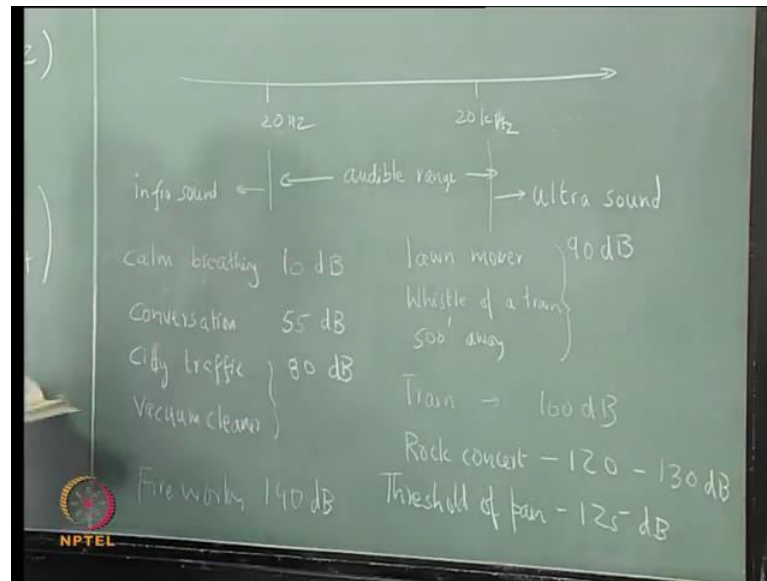 2)
20Hz
20kHz
infra sound ← ← audible range → → ultra sound
calm breathing 10 dB
Conversation 55 dB
City traffic 80 dB
Vacuum cleaner
Fireworks 140 dB
lawn mover 90 dB
Whistle of a train
500' away
Train → 100 dB
Rock concert - 120 - 130 dB
Threshold of pain - 125 dB
NPTEL